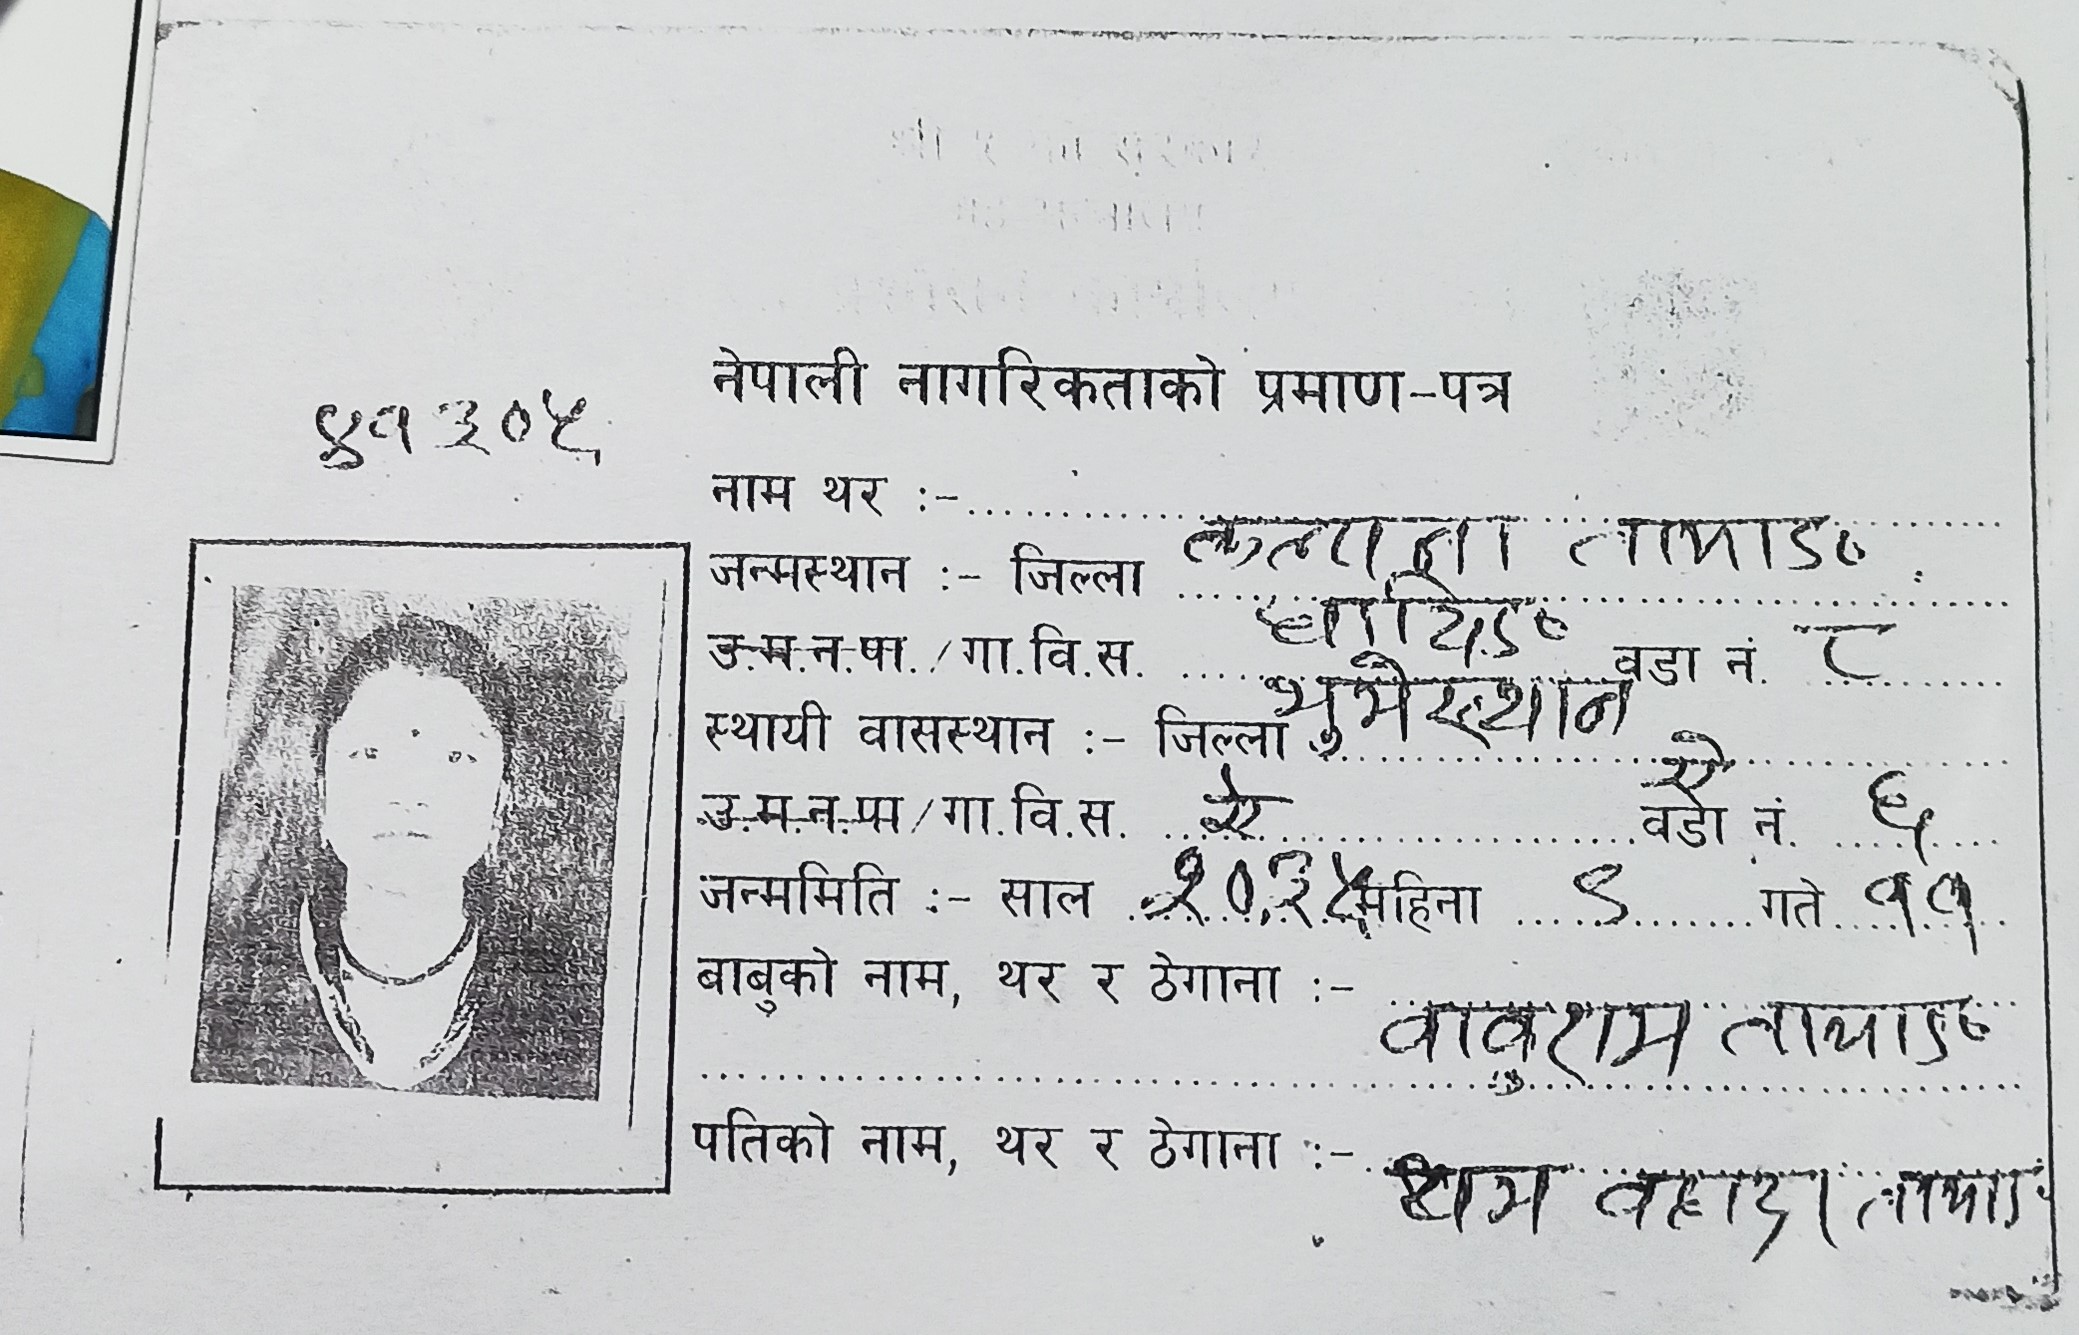 नेपाली नागरिकताको प्रमाण-पत्र
४१३०५
नाम थर :-
जन्मस्थान :- जिल्ला तामाङ
उ.म.न.पा./गा.वि.स. धादिङ वडा नं. ८
स्थायी वासस्थान :- जिल्ला भुमेस्थान
उ.म.न.पा/गा.वि.स. ऐ ऐ वडा नं. ६
जन्ममिति :- साल २०३५ महिना ८ गते ११
बाबुको नाम, थर र ठेगाना :-
वावुराम तामाङ
पतिको नाम, थर र ठेगाना :-
वहादुर तामाङ